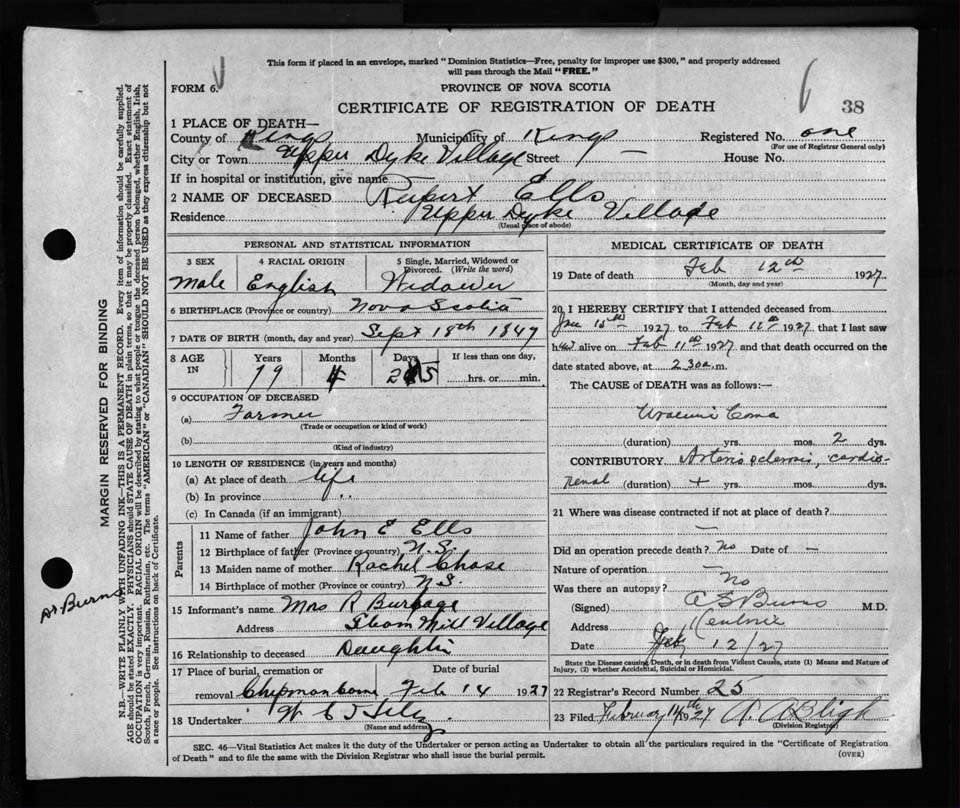 This form if placed in an envelope, marked "Dominion Statistics—Free, penalty for improper use $300," and properly addressed
will pass through the Mail "FREE."
FORM 6.
PROVINCE OF NOVA SCOTIA
CERTIFICATE OF REGISTRATION OF DEATH
38
1 PLACE OF DEATH—
County of Kings Municipality of Kings Registered No. one
(For use of Registrar General only)
City or Town Upper Dyke Village Street — House No.
If in hospital or institution, give name
2 NAME OF DECEASED Rupert Ells
Residence Upper Dyke Village
(Usual place of abode)
PERSONAL AND STATISTICAL INFORMATION
3 SEX 4 RACIAL ORIGIN 5 Single, Married, Widowed or Divorced. (Write the word)
Male English Widower
6 BIRTHPLACE (Province or country) Nova Scotia
7 DATE OF BIRTH (month, day and year) Sept 18th 1847
8 AGE IN Years Months Days If less than one day,
79 4 25 hrs. or min.
9 OCCUPATION OF DECEASED
(a) Farmer
(Trade or occupation or kind of work)
(b)
(Kind of industry)
10 LENGTH OF RESIDENCE (in years and months)
(a) At place of death life
(b) In province "
(c) In Canada (if an immigrant)
Parents
11 Name of father John E Ells
12 Birthplace of father (Province or country) N.S.
13 Maiden name of mother Rachel Chase
14 Birthplace of mother (Province or country) N.S.
15 Informant's name Mrs R Burbage
Address Steam Mill Village
16 Relationship to deceased Daughter
17 Place of burial, cremation or Date of burial
removal Feb 14 1927
18 Undertaker W C T
(Name and address)
MEDICAL CERTIFICATE OF DEATH
19 Date of death Feb 12th 1927
(Month, day and year)
20 I HEREBY CERTIFY that I attended deceased from
1927 to Feb 1927, that I last saw
h alive on Feb 11th 1927 and that death occurred on the
date stated above, at 2 30 a. m.
The CAUSE of DEATH was as follows:—
Uraemic Coma
(duration) yrs. mos. 2 dys.
CONTRIBUTORY Arterio sclerosis, cardio-
renal (duration) + yrs. mos. dys.
21 Where was disease contracted if not at place of death?
—
Did an operation precede death? No Date of —
Nature of operation —
Was there an autopsy? No
(Signed) A S Burns M.D.
Address Kentville
Date Feb 12/27
State the Disease causing Death, or in death from Violent Causes, state (1) Means and Nature of
Injury, (2) whether Accidental, Suicidal or Homicidal.
22 Registrar's Record Number 25
23 Filed February 14th 1927 A. A Bligh
(Division Registrar)
SEC. 46—Vital Statistics Act makes it the duty of the Undertaker or person acting as Undertaker to obtain all the particulars required in the "Certificate of Registration
of Death" and to file the same with the Division Registrar who shall issue the burial permit.
(OVER)
MARGIN RESERVED FOR BINDING
N.B.—WRITE PLAINLY WITH UNFADING INK—THIS IS A PERMANENT RECORD. Every item of information should be carefully supplied.
AGE should be stated EXACTLY. PHYSICIANS should STATE CAUSE OF DEATH in plain terms, so that it may be properly classified. Exact statement of
OCCUPATION is very important. RACIAL ORIGIN will be described by stating to what people or tongue the deceased person belonged, whether English, Irish,
Scotch, French, German, Russian, Ruthenian, etc. The terms "AMERICAN" or "CANADIAN" SHOULD NOT BE USED as they express citizenship but not
a race or people. See instructions on back of Certificate.
Burns